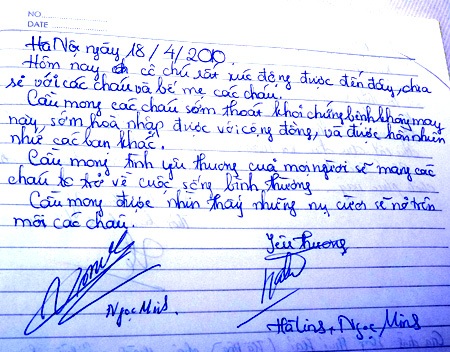 NO.
DATE
Hà Nội ngày 18/4/2010.
Hôm nay cô chú rất xúc động được đến đây, chia
sẻ với các cháu và bố mẹ các cháu.
Cầu mong các cháu sớm thoát khỏi chứng bệnh không may
này, sớm hoà nhập được với cộng đồng, và được hồn nhiên
như các bạn khác.
Cầu mong tình yêu thương của mọi người sẽ mang các
cháu trở về cuộc sống bình thường
Cầu mong được nhìn thấy những nụ cười sẽ nở trên
môi các cháu.
Yêu thương
Ngọc Minh.
Hà Linh + Ngọc Minh